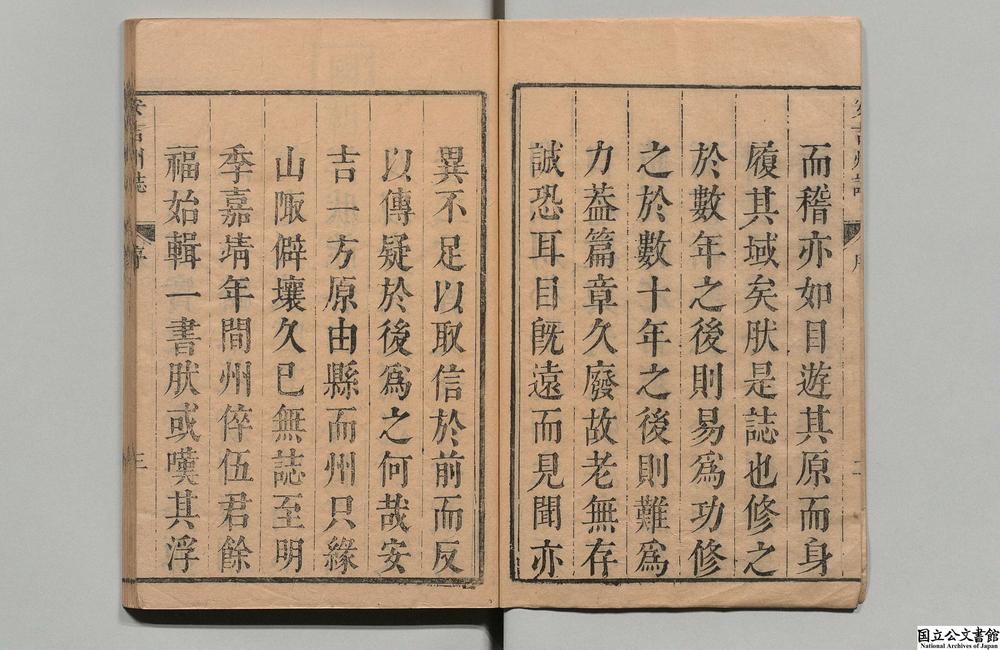 而稽亦如目遊其原而身
履其域矣肰是誌也修之
於數年之後則易爲功修
之於數十年之後則難爲
力葢篇章久廢故老無存
誠恐耳目旣遠而見聞亦
異不足以取信於前而反
以傳疑於後爲之何哉安
吉一方原由縣而州只緣
山陬僻壤久已無誌至明
季嘉靖年間州倅伍君餘
福始輯一書肰或嘆其浮
安吉州誌
序
三
国立公文書館
National Archives of Japan